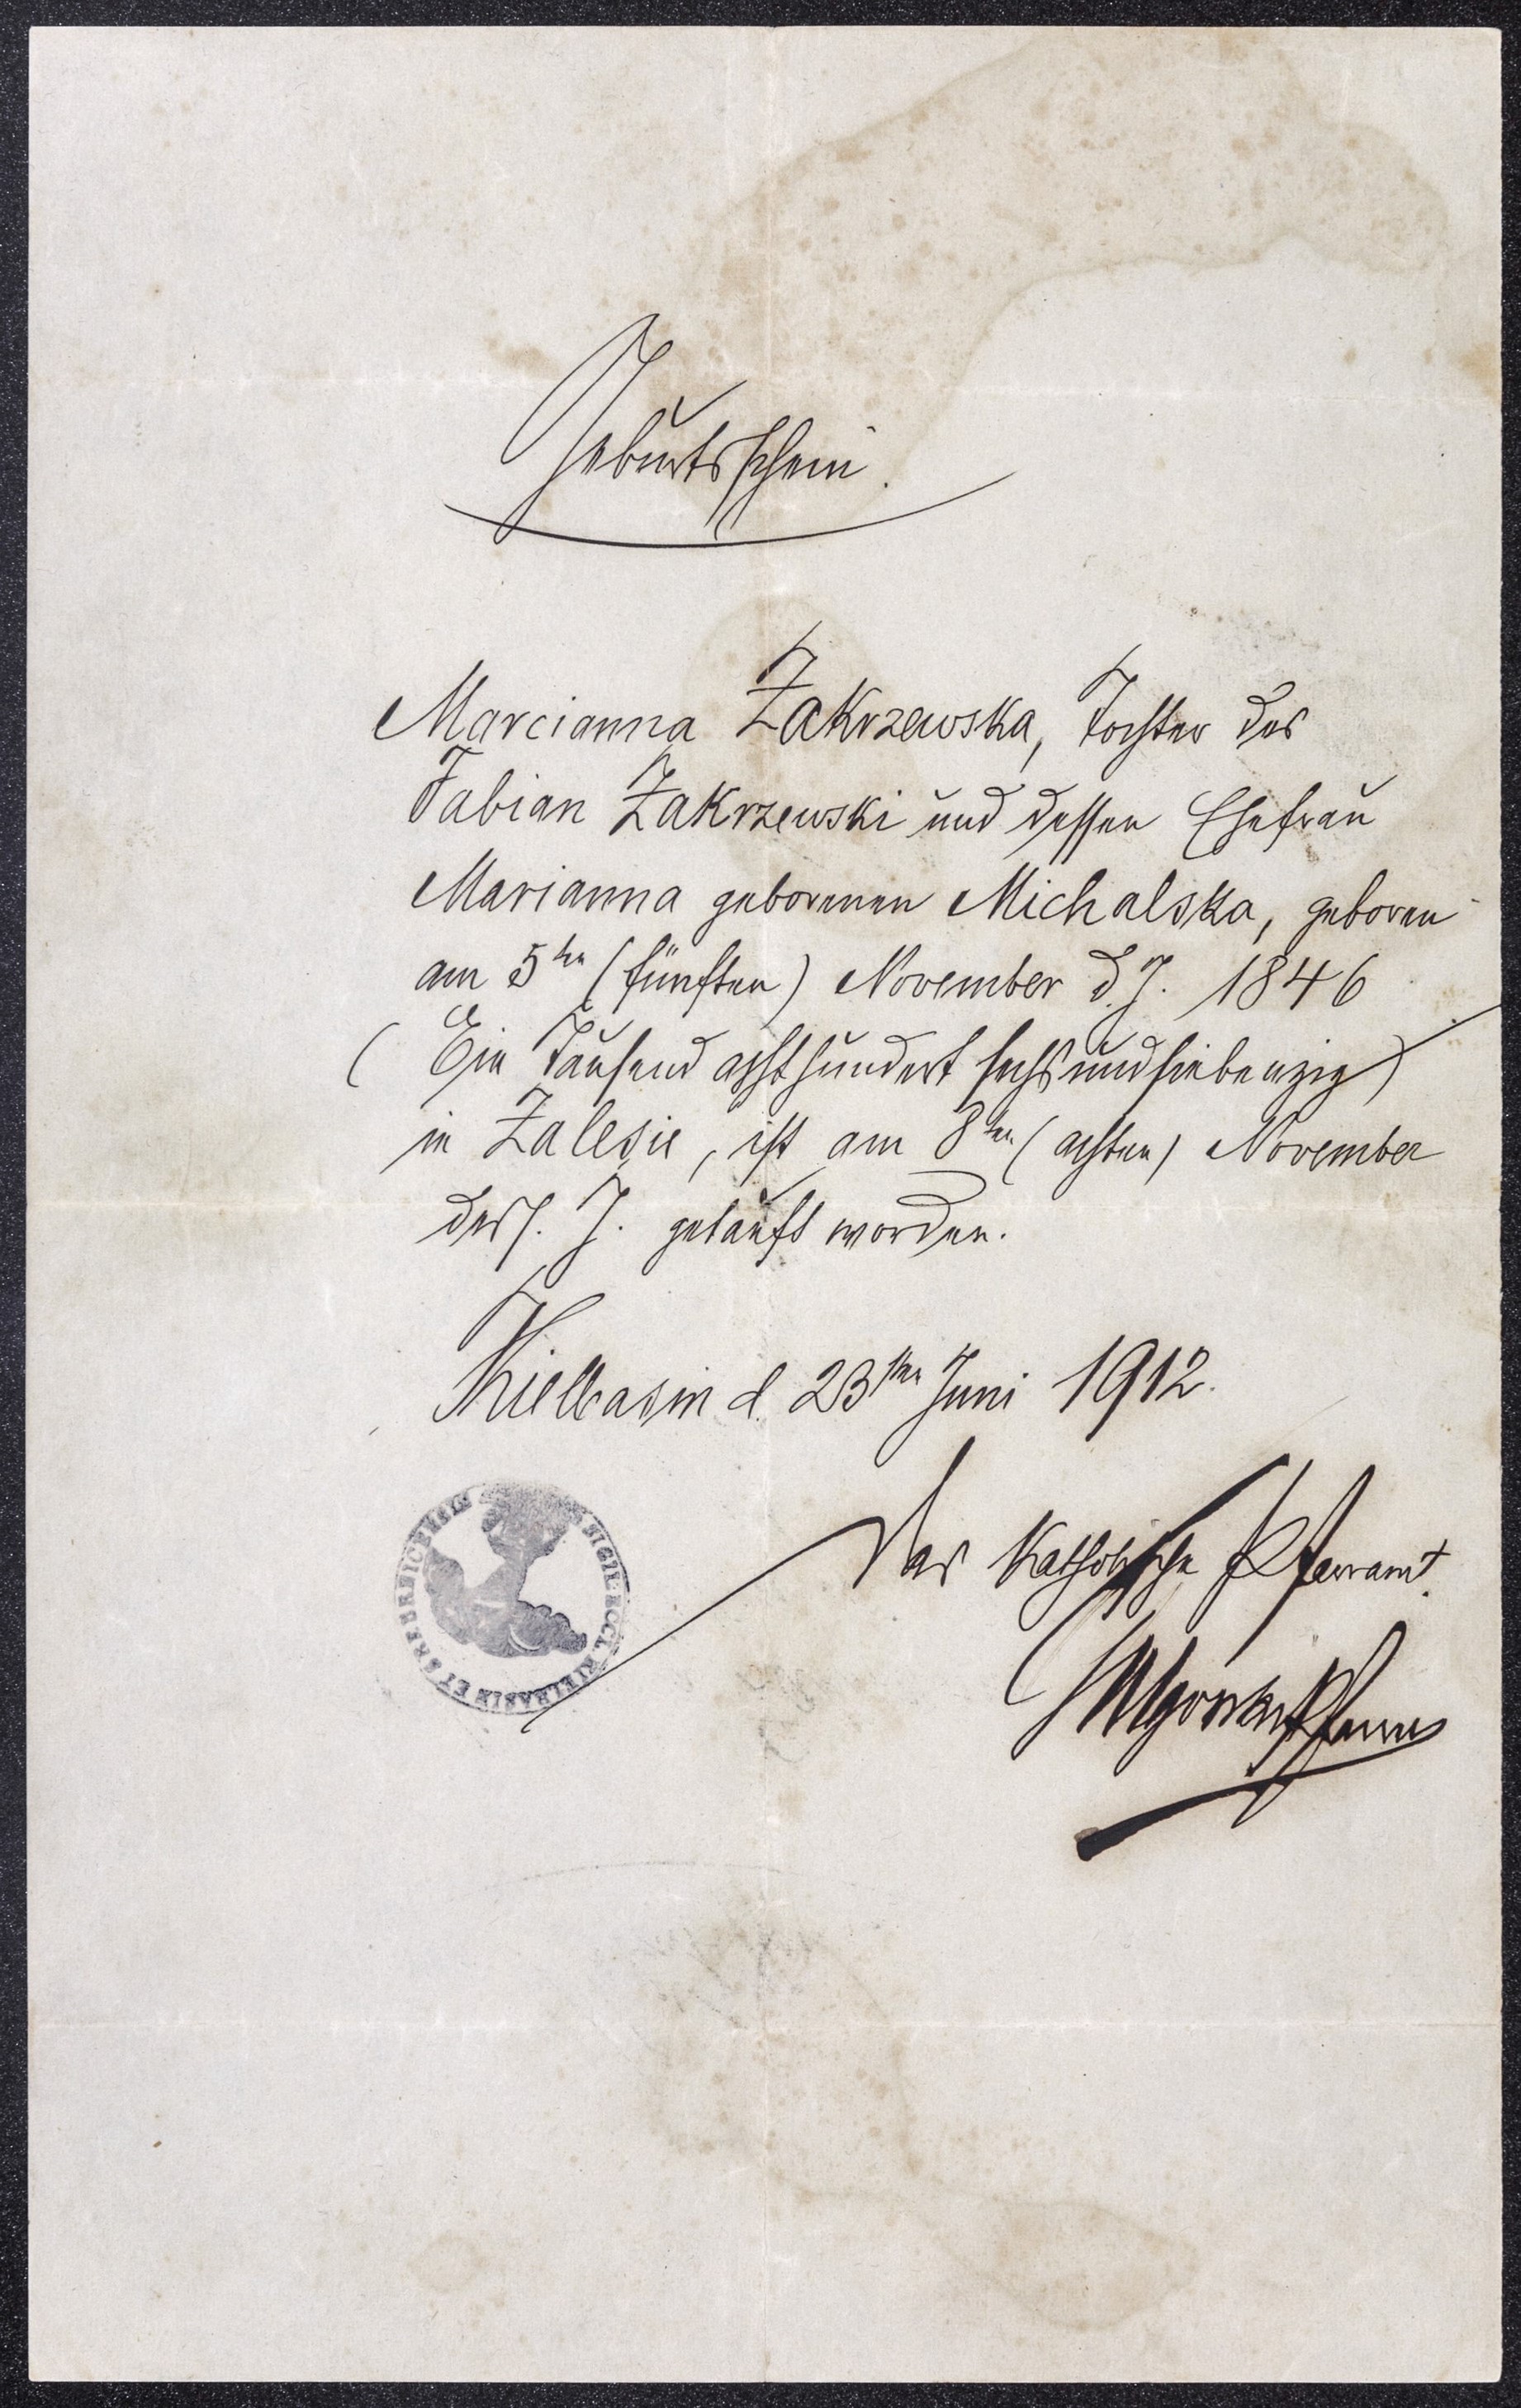 Geburtsschein.
Marcianna Zakrzewska, Tochter des
Fabian Zakrzewski und dessen Ehefrau
Marianna geborenen Michalska, geboren
am 5ten (fünften) November d. J. 1846
(Ein Tausend achthundert sechsundsiebenzig)
in Zalesie, ist am 8ten (achten) November
dess. J. getauft worden.
Kielbasin d. 23ten Juni 1912.
Das Katholische Pfarramt.
Pfarrer
SIGIL. ECCL. KIELBASIN ET